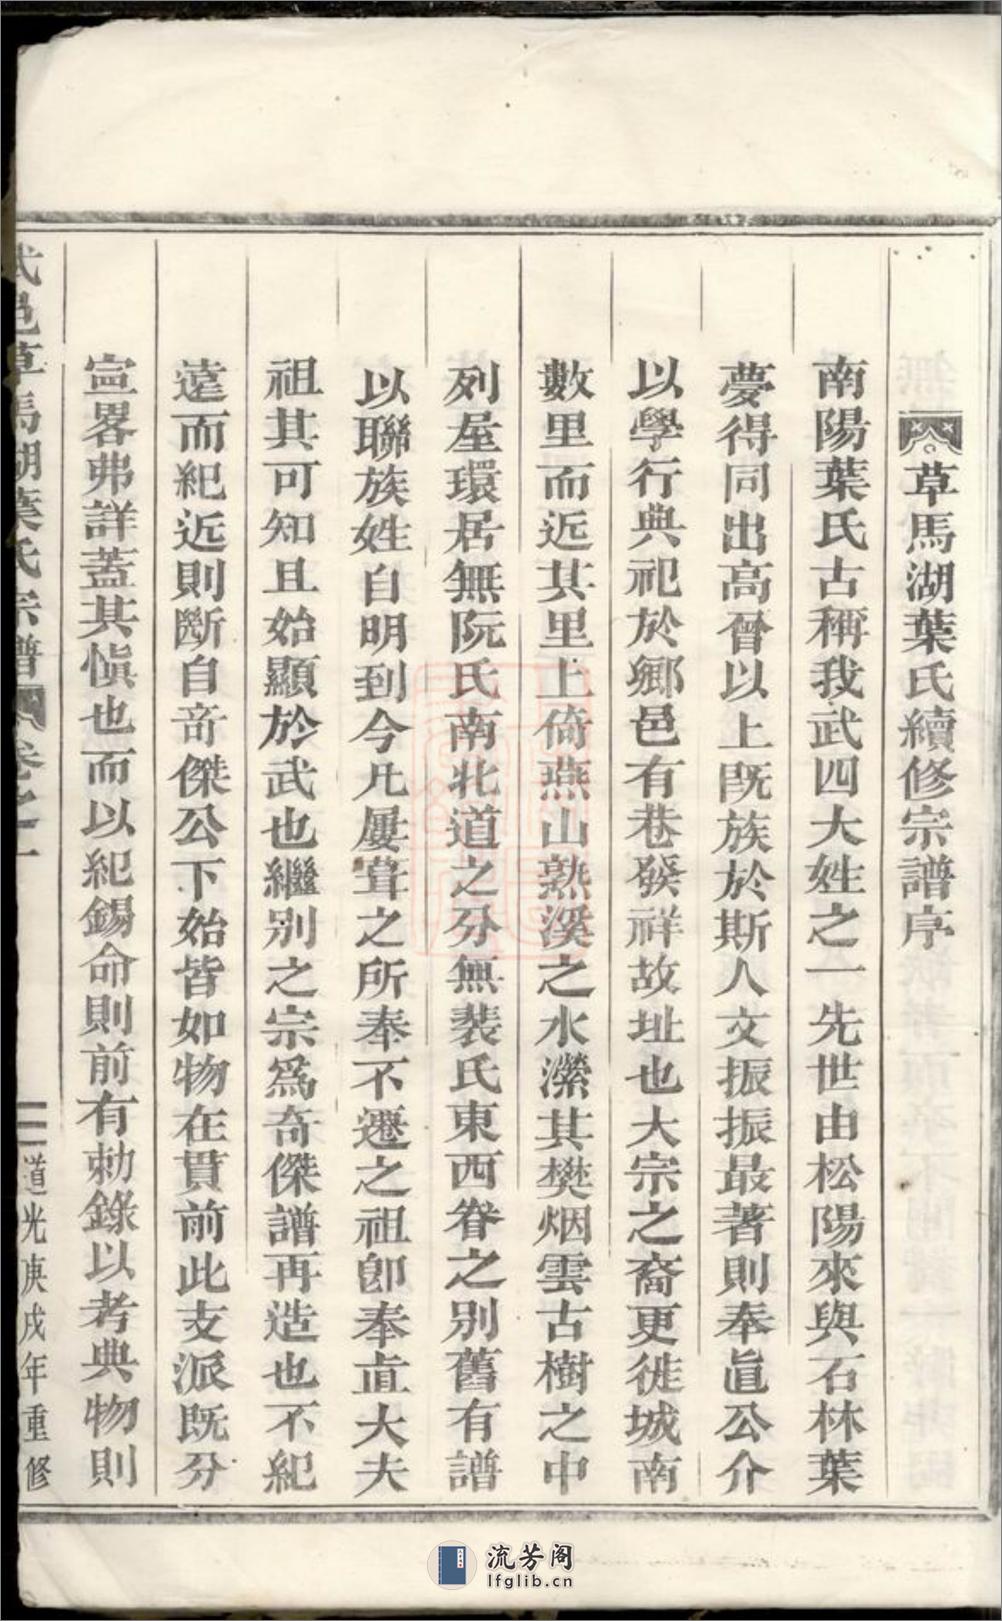 草馬湖葉氏續修宗譜序
南陽葉氏古稱我武四大姓之一先世由松陽來與石林葉
夢得同出高曾以上旣族於斯人文振振最著則奉眞公介
以學行典祀於鄉邑有巷發祥故址也大宗之裔更徙城南
數里而近其里上倚燕山熟溪之水瀠其樊烟雲古樹之中
列屋環居無阮氏南北道之分無裴氏東西眷之別舊有譜
以聯族姓自明到今凡屢葺之所奉不遷之祖卽奉直大夫
祖其可知且始顯於武也繼别之宗爲奇傑譜再造也不紀
遠而紀近則斷自竒傑公下始皆如物在貫前此支派既分
寧畧弗詳蓋其愼也而以紀錫命則前有勅錄以考典物則
武邑草馬湖葉氏宗譜 卷之一 道光庚戌年重修
流芳阁
lfglib.cn